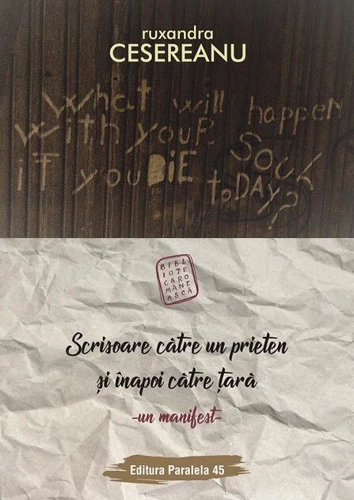 ruxandra
CESEREANU
What will happen
with your SOUL
if you DIE toDAY?
BIBL
IOTE
CARO
MÂNE
ASCĂ
Scrisoare către un prieten
și înapoi către țară
-un manifest-
Editura Paralela 45